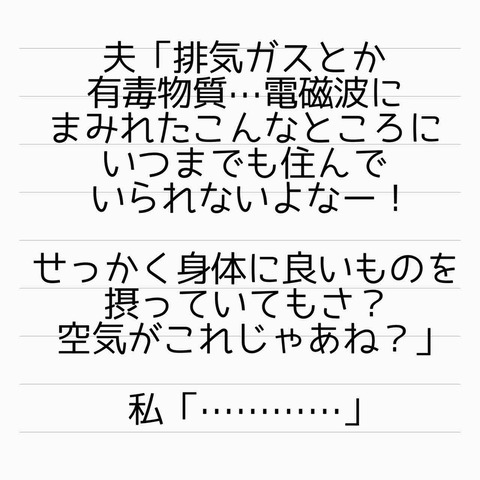 夫「排気ガスとか
有毒物質…電磁波に
まみれたこんなところに
いつまでも住んで
いられないよなー！
せっかく身体に良いものを
摂っていてもさ？
空気がこれじゃあね？」
私「…………」